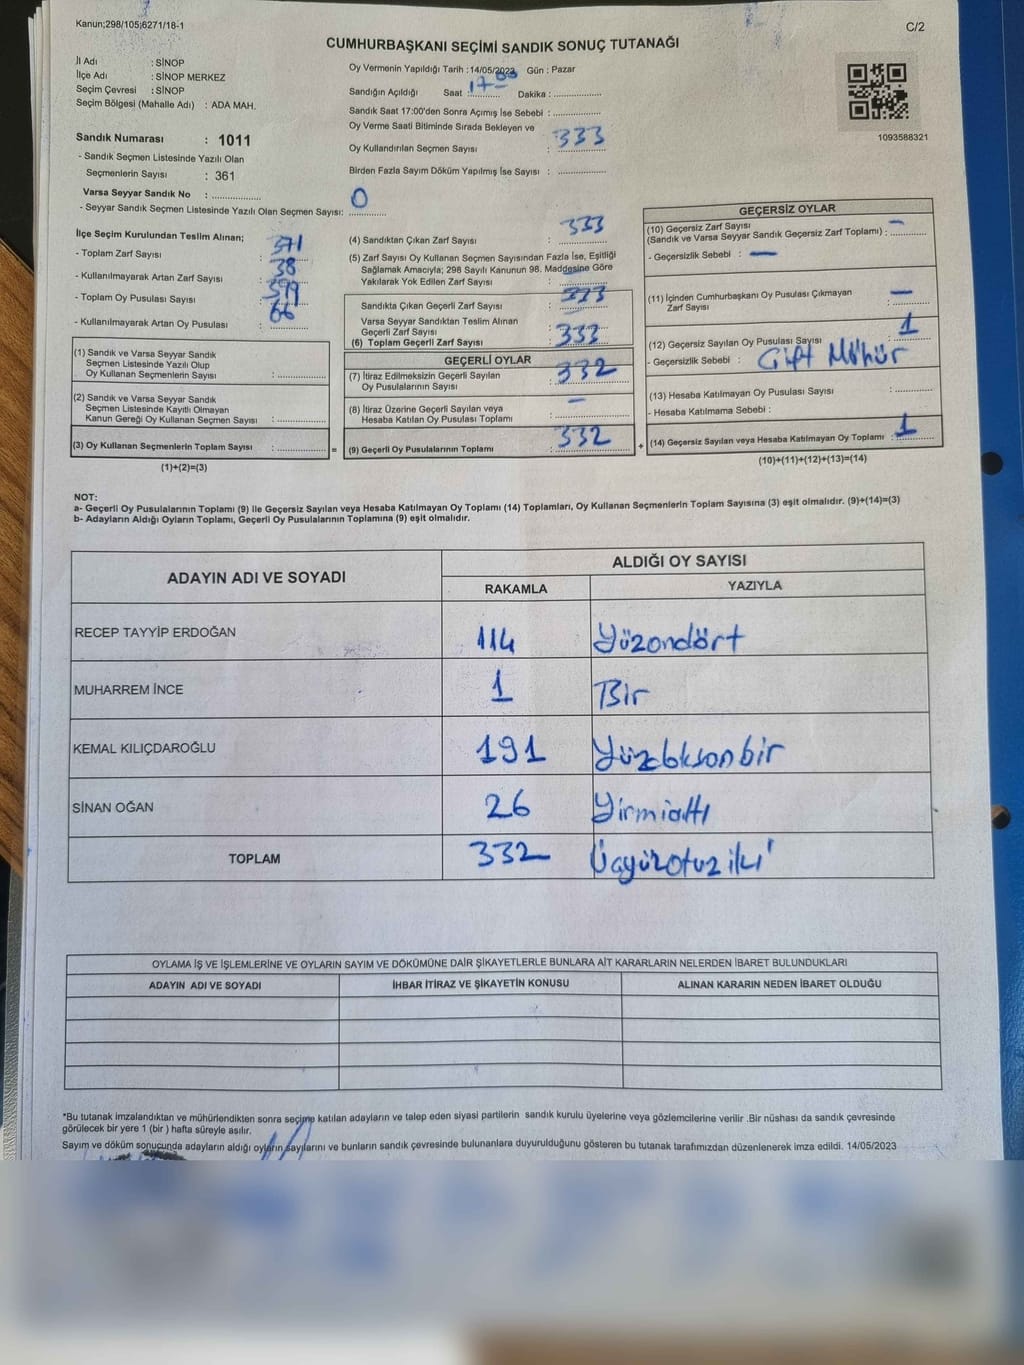 Kanun;298/105;6271/18-1
C/2
CUMHURBAŞKANI SEÇİMİ SANDIK SONUÇ TUTANAĞI
İl Adı : SİNOP
İlçe Adı : SİNOP MERKEZ
Seçim Çevresi : SİNOP
Seçim Bölgesi (Mahalle Adı) : ADA MAH.
Sandık Numarası : 1011
- Sandık Seçmen Listesinde Yazılı Olan
Seçmenlerin Sayısı : 361
Varsa Seyyar Sandık No : ..................
- Seyyar Sandık Seçmen Listesinde Yazılı Olan Seçmen Sayısı: 0
Oy Vermenin Yapıldığı Tarih :14/05/2023 Gün : Pazar
Sandığın Açıldığı Saat :17-00 Dakika : ..................
Sandık Saat 17:00'den Sonra Açımış İse Sebebi : ..................
Oy Verme Saati Bitiminde Sırada Bekleyen ve
Oy Kullandırılan Seçmen Sayısı : 333
Birden Fazla Sayım Döküm Yapılmış İse Sayısı : ..................
1093588321
İlçe Seçim Kurulundan Teslim Alınan;
- Toplam Zarf Sayısı : 371
- Kullanılmayarak Artan Zarf Sayısı : 38
- Toplam Oy Pusulası Sayısı :
- Kullanılmayarak Artan Oy Pusulası : 66
(1) Sandık ve Varsa Seyyar Sandık
Seçmen Listesinde Yazılı Olup
Oy Kullanan Seçmenlerin Sayısı : ..................
(2) Sandık ve Varsa Seyyar Sandık
Seçmen Listesinde Kayıtlı Olmayan
Kanun Gereği Oy Kullanan Seçmen Sayısı : ..................
(3) Oy Kullanan Seçmenlerin Toplam Sayısı : .................. =
(1)+(2)=(3)
(4) Sandıktan Çıkan Zarf Sayısı : 333
(5) Zarf Sayısı Oy Kullanan Seçmen Sayısından Fazla İse, Eşitliği
Sağlamak Amacıyla; 298 Sayılı Kanunun 98. Maddesine Göre
Yakılarak Yok Edilen Zarf Sayısı : —
Sandıkta Çıkan Geçerli Zarf Sayısı : 333
Varsa Seyyar Sandıktan Teslim Alınan
Geçerli Zarf Sayısı
(6) Toplam Geçerli Zarf Sayısı : 333
GEÇERLİ OYLAR
(7) İtiraz Edilmeksizin Geçerli Sayılan
Oy Pusulalarının Sayısı : 332
(8) İtiraz Üzerine Geçerli Sayılan veya
Hesaba Katılan Oy Pusulası Toplamı : —
(9) Geçerli Oy Pusulalarının Toplamı : 332 +
GEÇERSİZ OYLAR
(10) Geçersiz Zarf Sayısı
(Sandık ve Varsa Seyyar Sandık Geçersiz Zarf Toplamı) : —
- Geçersizlik Sebebi : —
(11) İçinden Cumhurbaşkanı Oy Pusulası Çıkmayan
Zarf Sayısı : —
(12) Geçersiz Sayılan Oy Pusulası Sayısı : 1
- Geçersizlik Sebebi : Çift Mühür
(13) Hesaba Katılmayan Oy Pusulası Sayısı : ..................
- Hesaba Katılmama Sebebi :
(14) Geçersiz Sayılan veya Hesaba Katılmayan Oy Toplamı : 1
(10)+(11)+(12)+(13)=(14)
NOT:
a- Geçerli Oy Pusulalarının Toplamı (9) ile Geçersiz Sayılan veya Hesaba Katılmayan Oy Toplamı (14) Toplamları, Oy Kullanan Seçmenlerin Toplam Sayısına (3) eşit olmalıdır. (9)+(14)=(3)
b- Adayların Aldığı Oyların Toplamı, Geçerli Oy Pusulalarının Toplamına (9) eşit olmalıdır.
ADAYIN ADI VE SOYADI
ALDIĞI OY SAYISI
RAKAMLA YAZIYLA
RECEP TAYYİP ERDOĞAN 114 Yüzondört
MUHARREM İNCE 1 Bir
KEMAL KILIÇDAROĞLU 191
SİNAN OĞAN 26 Yirmialtı
TOPLAM 332 Üçyüzotuziki
OYLAMA İŞ VE İŞLEMLERİNE VE OYLARIN SAYIM VE DÖKÜMÜNE DAİR ŞİKAYETLERLE BUNLARA AİT KARARLARIN NELERDEN İBARET BULUNDUKLARI
ADAYIN ADI VE SOYADI İHBAR İTİRAZ VE ŞİKAYETİN KONUSU ALINAN KARARIN NEDEN İBARET OLDUĞU
*Bu tutanak imzalandıktan ve mühürlendikten sonra seçime katılan adayların ve talep eden siyasi partilerin sandık kurulu üyelerine veya gözlemcilerine verilir .Bir nüshası da sandık çevresinde
görülecek bir yere 1 (bir ) hafta süreyle asılır.
Sayım ve döküm sonucunda adayların aldığı oyların sayılarını ve bunların sandık çevresinde bulunanlara duyurulduğunu gösteren bu tutanak tarafımızdan düzenlenerek imza edildi. 14/05/2023